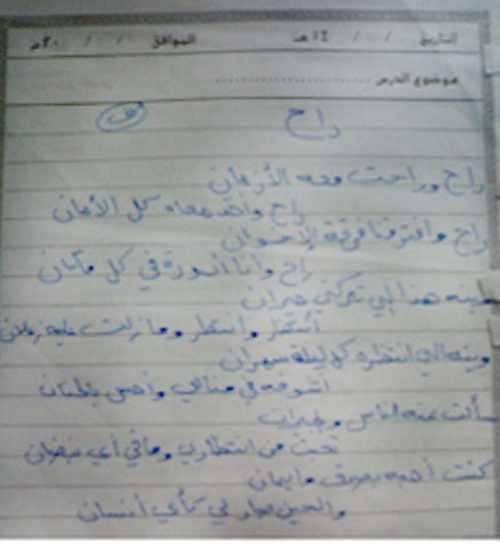 التاريخ / / ١٤ هـ الموافق / / ٢٠ م
موضوع الدرس
راح
راح وراحت معه الأزمان
راح وأخد معاه كل الأمان
راح وافترقنا فرقة الإخوان
راح وأنا أدورة في كل مكان
وينه هذا إلي تركني حيران
أنتظر وانتظر وما زلت عليه زعلان
وينه الي انتظره كل ليلة سهران
أشوفه في منامي وأحس باطمنان
سألت عنه الناس والجيران
تعبت من انتظاري وما في أي
كنت أحبه بصدق وإيمان
والحين صار لي كأي أنسان